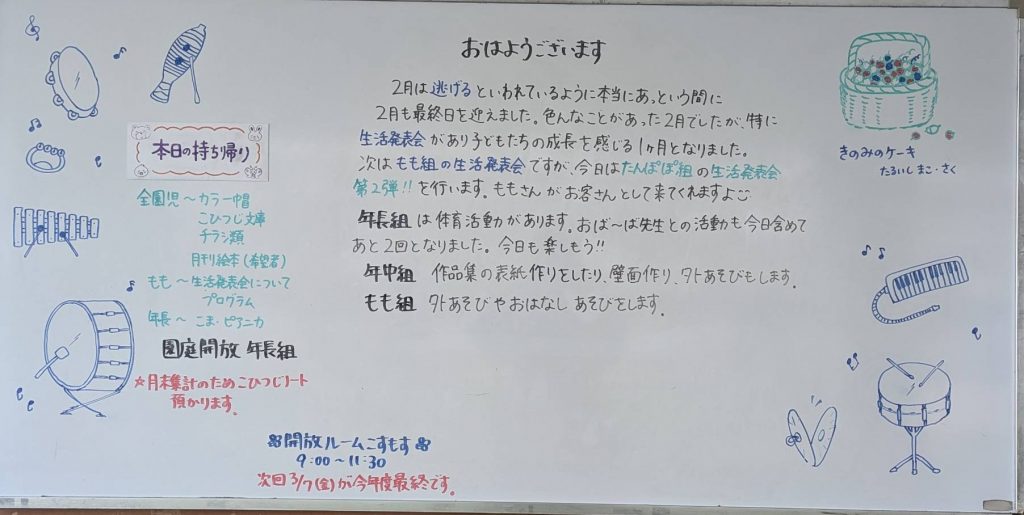 おはようございます
2月は逃げるといわれているように本当にあっという間に
2月も最終日を迎えました。色んなことがあった2月でしたが、特に
生活発表会があり子どもたちの成長を感じる1ヶ月となりました。
次はもも組の生活発表会ですが、今日はたんぽぽ組の生活発表会
第2弾!!を行います。ももさんがお客さんとして来てくれますよ
年長組は体育活動があります。おば〜ば先生との活動も今日含めて
あと2回となりました。今日も楽しもう!!
年中組 作品集の表紙作りをしたり、壁面作り、外あそびもします。
もも組 外あそびやおはなしあそびをします。
本日の持ち帰り
全園児〜カラー帽
こひつじ文庫
チラシ類
月刊絵本(希望者)
もも〜生活発表会について
プログラム
年長〜こま・ピアニカ
園庭開放 年長組
☆月末集計のためこひつじノート
預かります。
開放ルームこすもす
9:00〜11:30
次回3/7(金)が今年度最終です。
きのみのケーキ
たるいし まこ・さく